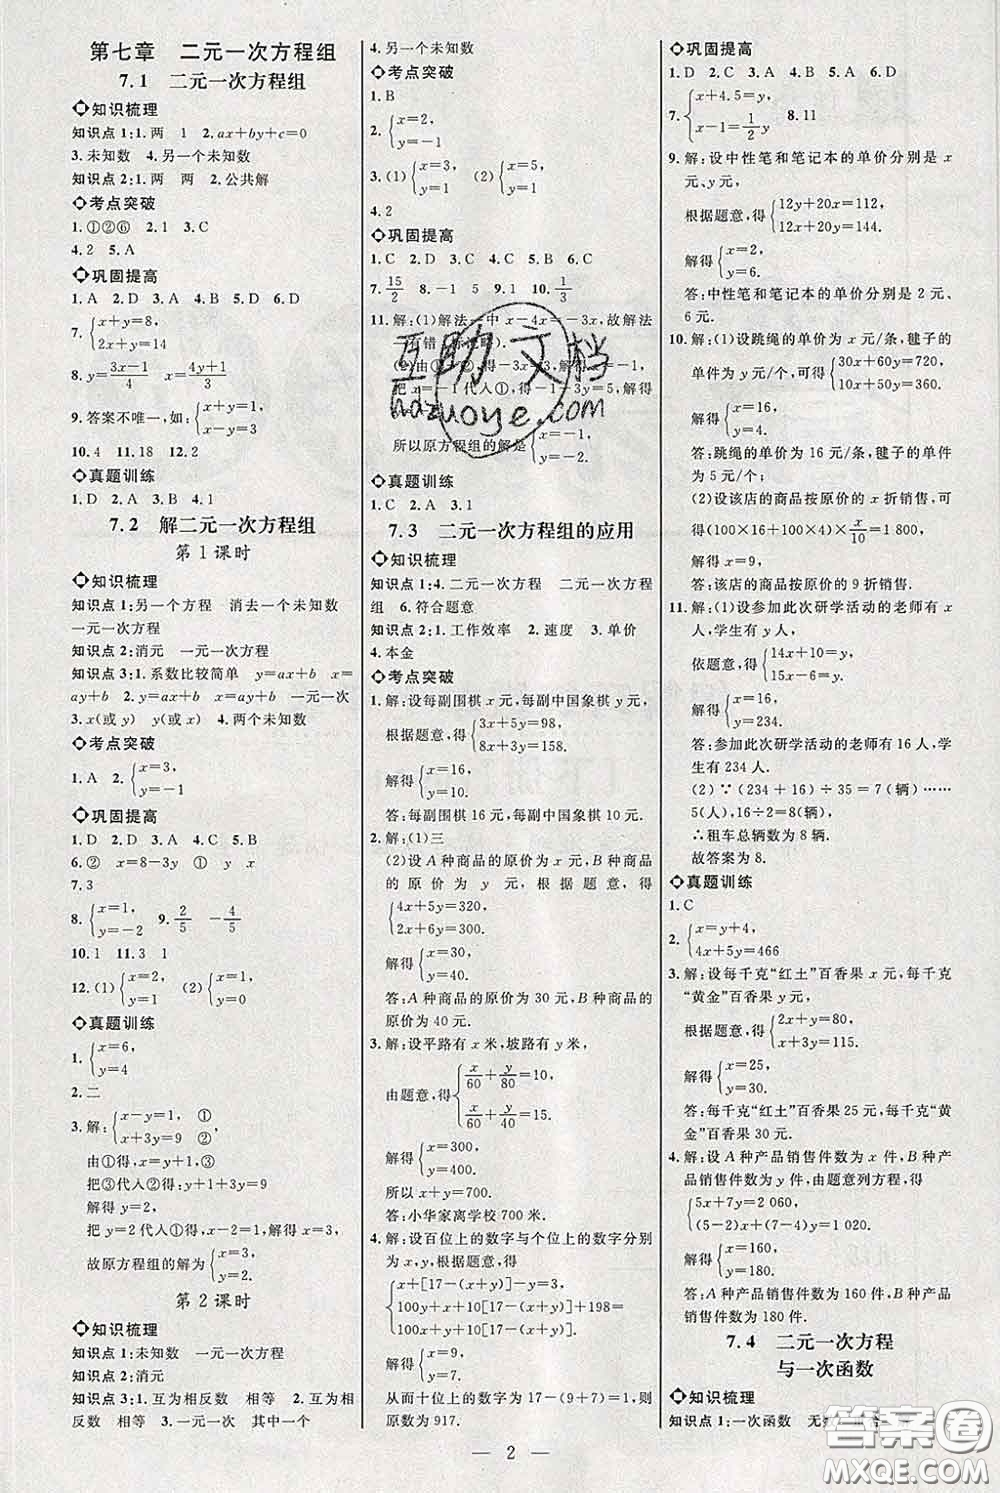 第七章　二元一次方程组
7.1　二元一次方程组
知识梳理
知识点 1:1. 两　1　2. ax+by+c=0
3. 未知数　4. 另一个未知数
知识点 2:1. 两　两　2. 公共解
考点突破
1. ①②⑥　2. 1　3. C
4. 2　5. A
巩固提高
1. A　2. D　3. A　4. B　5. B　6. D
7. {x+y=8,
2x+y=14
8. y=(3x-1)/4　x=(4y+1)/3
9. 答案不唯一,如:{x+y=1,
x-y=3
10. 4　11. 18　12. 2
真题训练
1. D　2. A　3. B　4. 1
7.2　解二元一次方程组
第 1 课时
知识梳理
知识点 1:另一个方程　消去一个未知数
一元一次方程
知识点 2:消元　一元一次方程
知识点 3:1. 系数比较简单　y=ax+b　x=
ay+b　2. y=ax+b　x=ay+b　一元一次
3. x(或 y)　y(或 x)　4. 两个未知数
考点突破
1. A　2. {x=3,
y=-1
巩固提高
1. D　2. D　3. B　4. C　5. B
6. ②　x=8-3y　①　y　x
7. 3
8. {x=1,
y=-2　9. 2/5　-4/5
10. 1　11. 3　1
12. (1){x=2,
y=1　(2){x=2,
y=0
真题训练
1. {x=6,
y=4
2. 二
3. 解:{x-y=1,　①
x+3y=9　②
由①得,x=y+1,③
把③代入②得:y+1+3y=9
解得 y=2
把 y=2代入①得,x-2=1,解得 x=3;
故原方程组的解为{x=3,
y=2.
第 2 课时
知识梳理
知识点 1:未知数　一元一次方程
知识点 2:消元
知识点 3:1. 互为相反数　相等　2. 互为相
反数　相等　3. 一元一次　其中一个
4. 另一个未知数
考点突破
1. B
2. {x=2,
y=-1
3. (1){x=3,
y=1　(2){x=5,
y=1
4. 2
巩固提高
1. C　2. D　3. B　4. B　5. D　6. C
7. 15/2　8. -1　5　9. 1　10. 1/3
11. 解:(1)解法一中 x-4x=-3x,故解法
一有错
把 x=-1代入①得:-1-3y=5,解得
所以原方程组的解是{x=-1,
y=-2.
真题训练
1. C　2. A　3. 1
7.3　二元一次方程组的应用
知识梳理
知识点 1:4. 二元一次方程　二元一次方程
组　6. 符合题意
知识点 2:1. 工作效率　2. 速度　3. 单价
4. 本金
考点突破
1. 解:设每副围棋 x 元,每副中国象棋 y 元,
根据题意,得{3x+5y=98,
8x+3y=158.
解得{x=16,
y=10.
答:每副围棋 16 元,每副中国象棋 10 元.
2. 解:(1)三
(2)设 A 种商品的原价为 x 元,B 种商品
的原价为 y 元,根据题意,得
{4x+5y=320,
2x+6y=300.
解得{x=30,
y=40.
答:A 种商品的原价为 30 元,B 种商品的
原价为 40 元.
3. 解:设平路有 x 米,坡路有 y 米,
由题意,得{x/60+y/80=10,
x/60+y/40=15.
解得{x=300,
y=400.
所以 x+y=700.
答:小华家离学校 700 米.
4. 解:设百位上的数字与个位上的数字分别
为 x、y,根据题意,得
{x+[17-(x+y)]-y=3,
100y+x+10[17-(x+y)]+198=
100x+y+10[17-(x+y)].
解得{x=9,
y=7.
从而十位上的数字为 17-(9+7)=1,则
原数为 917.
巩固提高
1. D　2. C　3. A　4. B　5. A　6. D
7. {x+4.5=y,
x-1=1/2 y　8. 11
9. 解:设中性笔和笔记本的单价分别是 x
元、y元,
根据题意,得{12y+20x=112,
12x+20y=144.
解得{x=2,
y=6.
答:中性笔和笔记本的单价分别是 2 元、
6 元.
10. 解:(1)设跳绳的单价为 x 元/条,毽子的
单件为 y 元/个,可得:{30x+60y=720,
10x+50y=360.
解得:{x=16,
y=4.
答:跳绳的单价为 16 元/条,毽子的单件
为 5 元/个;
(2)设该店的商品按原价的 x 折销售,可
得(100×16+100×4)×x/10=1 800,
解得:x=9.
答:该店的商品按原价的 9 折销售.
11. 解:(1)设参加此次研学活动的老师有 x
人,学生有 y 人,
依题意,得:{14x+10=y,
15x-6=y.
解得:{x=16,
y=234.
答:参加此次研学活动的老师有 16 人,学
生有 234 人.
(2)∵(234+16)÷35=7(辆)……
5(人),16÷2=8(辆),
∴租车总辆数为 8 辆.
故答案为 8.
真题训练
1. C
2. {x=y+4,
4x+5y=466
3. 解:设每千克“红土”百香果 x 元,每千克
“黄金”百香果 y 元,
根据题意,得{2x+y=80,
x+3y=115.
解得{x=25,
y=30.
答:每千克“红土”百香果 25 元,每千克“黄
金”百香果 30 元.
4. 解:设 A 种产品销售件数为 x 件,B 种产
品销售件数为 y 件,由题意列方程,得
{5x+7y=2 060,
(5-2)x+(7-3)y=1 020.
解得{x=160,
y=180.
答:A 种产品销售件数为 160 件,B 种产品
销售件数为 180 件.
7.4　二元一次方程
与一次函数
知识梳理
知识点 1:一次函数　无数
— 2 —
互助文档
hdzuoye.com
答案圈
MXQE.COM